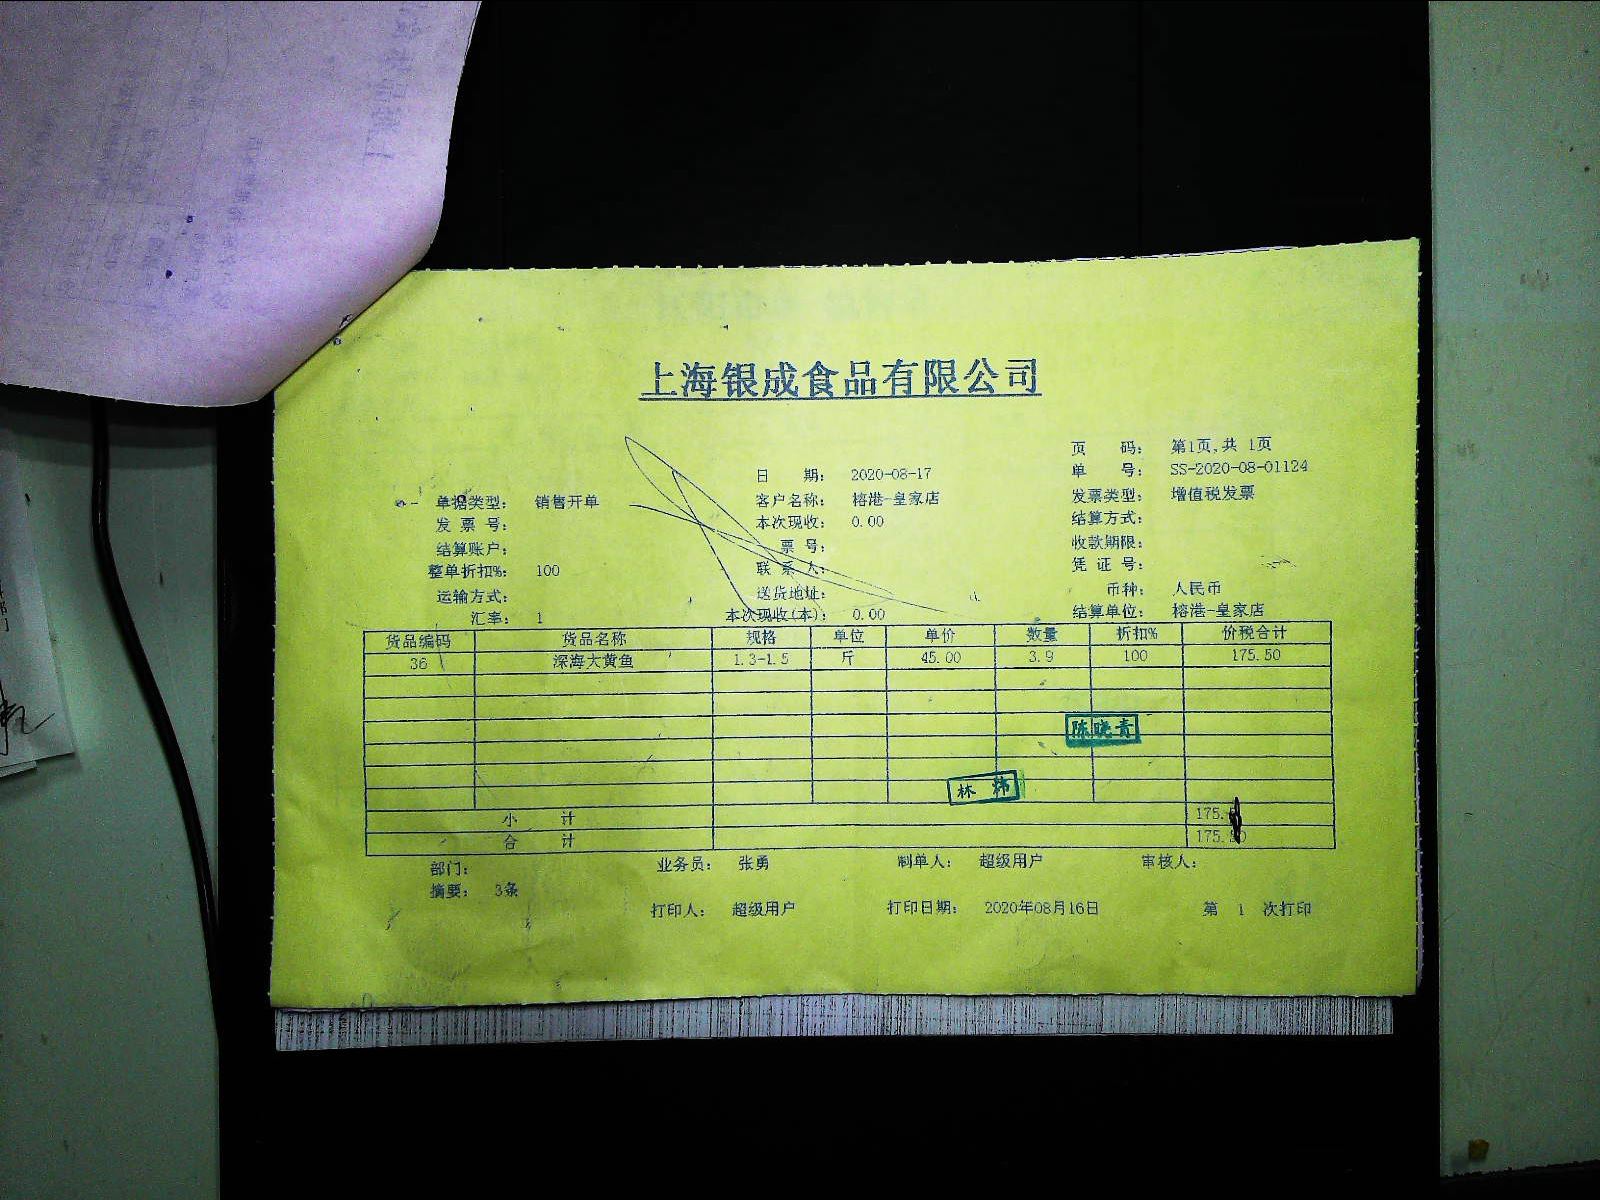 上海银成食品有限公司
页 码： 第1页,共 1页
日 期： 2020-08-17 单 号： SS-2020-08-01124
单据类型： 销售开单 客户名称： 榕港-皇家店 发票类型： 增值税发票
发 票 号： 本次现收： 0.00 结算方式：
结算账户： 票 号： 收款期限：
整单折扣%： 100 联 系 人： 凭 证 号：
运输方式： 送货地址： 币种： 人民币
汇率： 1 本次现收(本)： 0.00 结算单位： 榕港-皇家店
货品编码 货品名称 规格 单位 单价 数量 折扣% 价税合计
36 深海大黄鱼 1.3-1.5 斤 45.00 3.9 100 175.50
陈晓青
林 炜
小 计 175.
合 计 175.
部门： 业务员： 张勇 制单人： 超级用户 审核人：
摘要： 3条
打印人： 超级用户 打印日期： 2020年08月16日 第 1 次打印